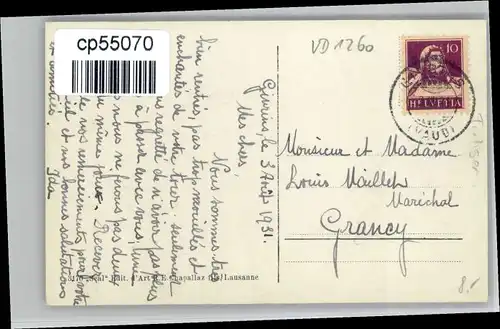 cp55070
VD 1260
10
HELVETIA
(VAUD)
Givrins, le 3 Août 1931.
Mes chers
Nous sommes très
bien rentrés, pas trop mouillés et
enchantés de notre tour; seulement
regrette de n'avoir pas plus
à passer avec vous; une
nous ne ferons pas deux
même jour. Recevez
de nos remerciements pour votre
et nos bonnes salutations
et amitiés. Ida
Monsieur et Madame
Louis Maillefer
Maréchal
Grancy
Edit. d'Art R.E. Chapallaz fils, Lausanne
8.-